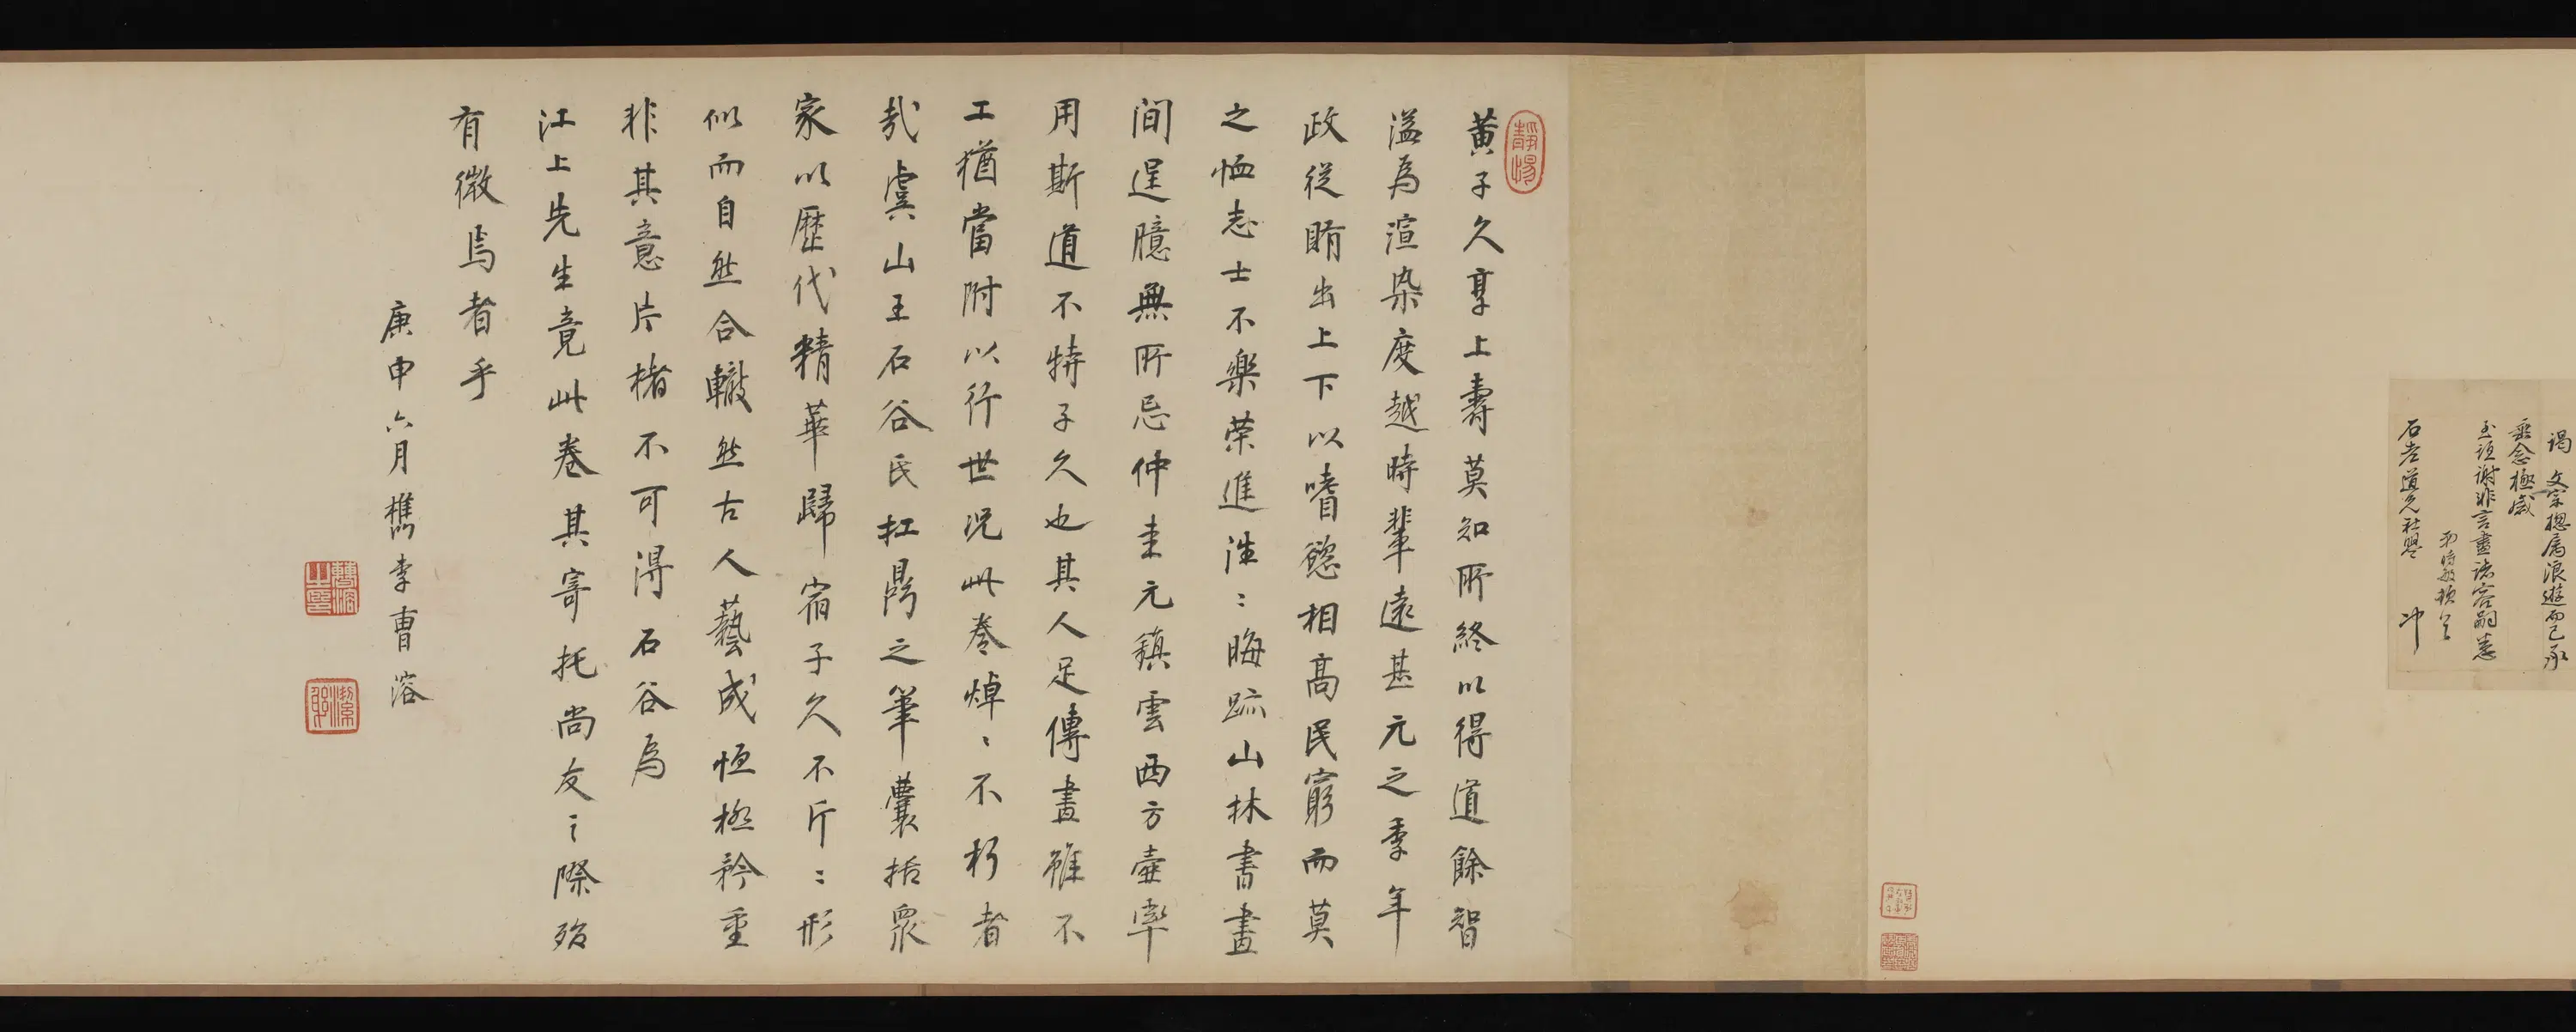 謁 文宗揔属浪遊而已承
垂念極感
玉詎謝非言盡諸容嗣悉
弟時敏頓首
石老道兄社盟 冲
靜惕
黃子久享上壽莫知所終以得道餘智
溢為渲染度越時輩遠甚元之季年
政從賄出上下以嗜慾相高民窮而莫
之恤志士不樂榮進往〻晦跡山林書畫
間逞臆無所忌仲圭元鎮雲西方壺率
用斯道不特子久也其人足傳畫雖不
工猶當附以行世況此卷焯〻不朽者
哉虞山王石谷氏扛鼎之筆囊括眾
家以歷代精華歸宿子久不斤〻形
似而自然合轍然古人藝成恒極矜重
非其意片楮不可得石谷為
江上先生竟此卷其寄托尚友之際殆
有微焉者乎
庚申六月檇李曹溶